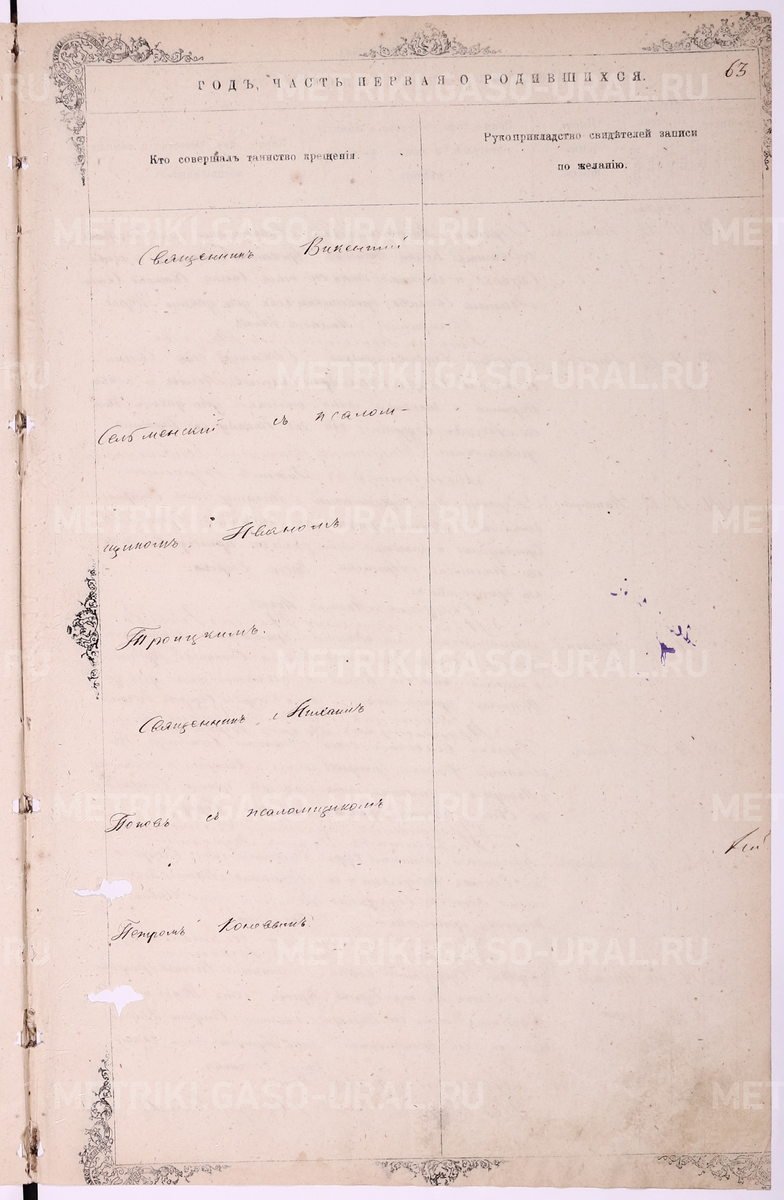 63
ГОДЪ, ЧАСТЬ ПЕРВАЯ О РОДИВШИХСЯ.
Кто совершалъ таинство крещенія.
Рукоприкладство свидѣтелей записи
по желанію.
Священникъ Викентій
Сельменскій съ псалом-
щикомъ Иваномъ
Троицкимъ.
Священникъ Михаилъ
Поповъ съ псаломщикомъ
Петромъ
METRIKI.GASO-URAL.RU